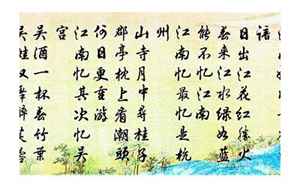 谙
日出江花红胜火
春来江水绿如蓝
能不忆江南
江南忆最忆是杭
州
山寺月中寻桂子
郡亭枕上看潮头
何日更重游
江南忆其次忆吴
宫
吴酒一杯春竹叶
吴娃双舞醉芙蓉